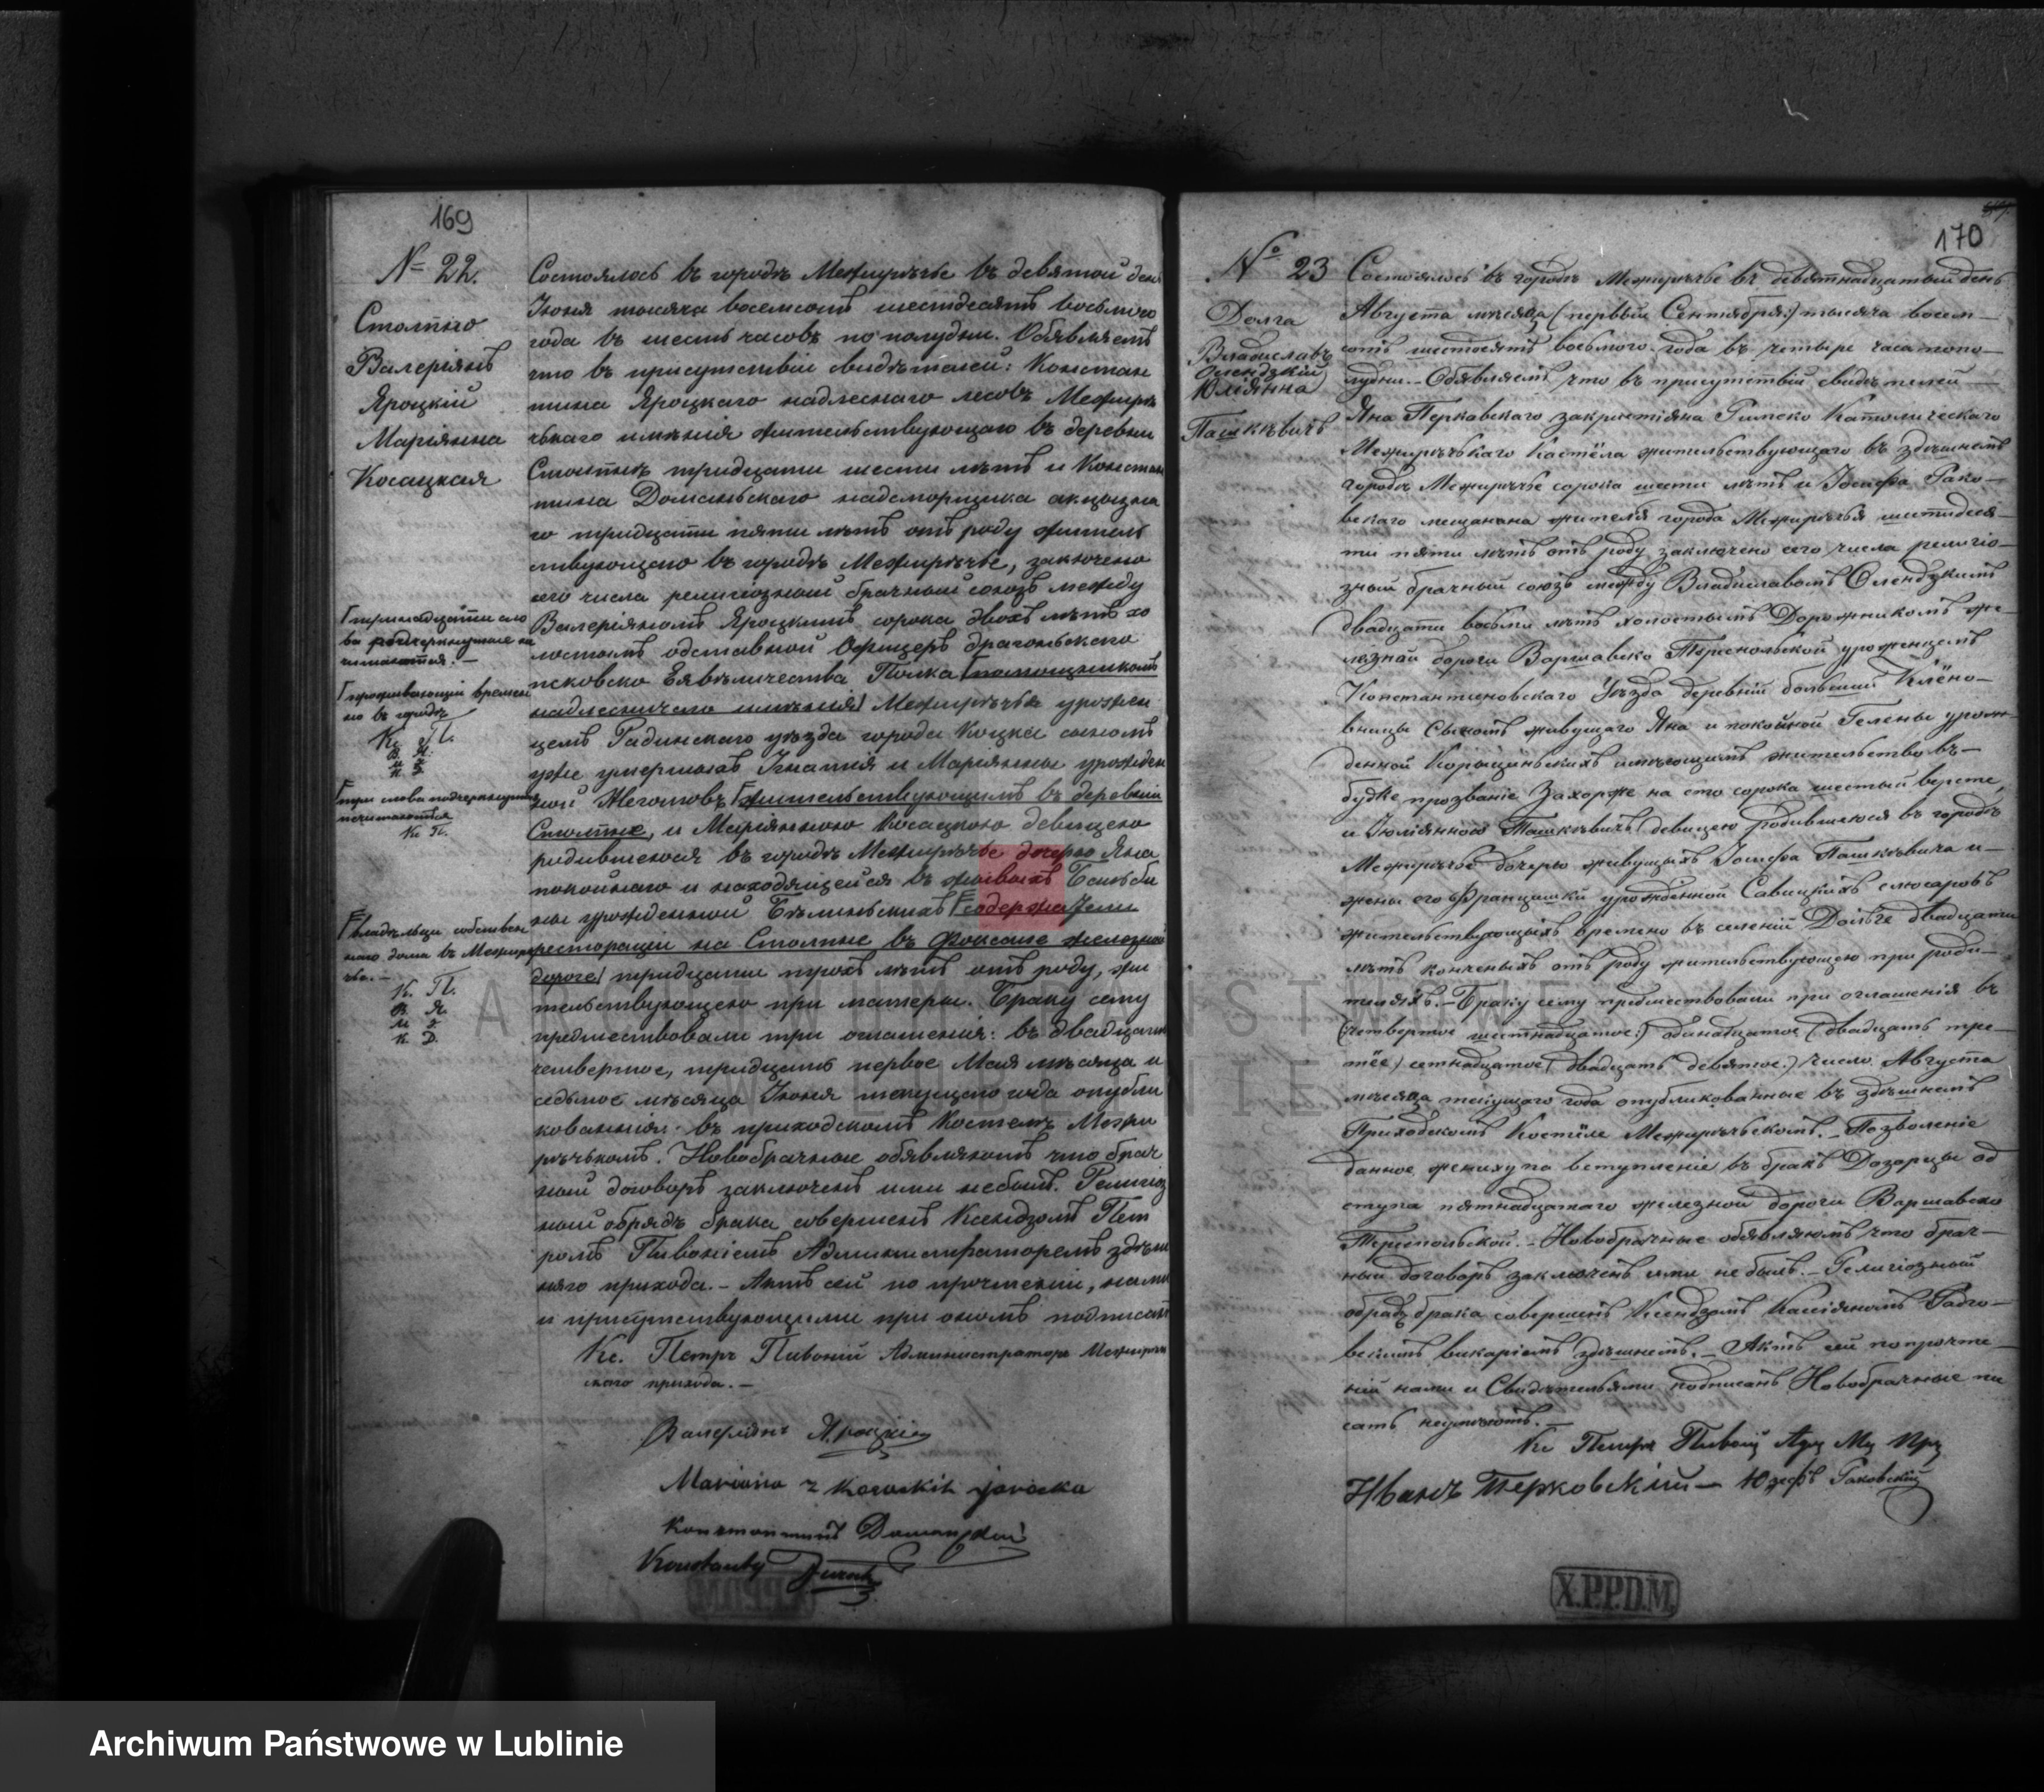 169
№ 22.
Столпно
Валеріянъ
Яроцкій
Маріянна
Косацкая
Состоялось въ городѣ Межирѣчье въ девятой день
Іюня тысяча восемсотъ шестдесятъ восьмого
года въ шесть часовъ по полудни. Объявляемъ
что въ присутствіи свидѣтелей: Констан
тина Яроцкаго надлеснаго лесовъ Межирѣ
чьскаго имѣнія жительствующаго въ деревни
Столпнѣ тридцати шести лѣтъ и Констан
тина Доманьскаго надсморщика акцызна
го тридцати пяти лѣтъ отъ роду житель
ствующаго въ городѣ Межирѣчье, заключено
сего числа религіозный брачный союзъ между
Валеріяномъ Яроцкимъ сорока двохъ лѣтъ хо
лостымъ одставной Офицеръ драгоньскаго
псковско Ея Величества Полка помощникомъ
надлесничаго имѣнія Межирѣчья урожен
цемъ Радинскаго уѣзда города Коцка сыномъ
уже умершихъ Игнатія и Маріянны урожден
ной Жеготовъ жительствующимъ въ деревни
Столпне, и Маріянною Косацкою девицею
родившеюся въ городѣ Межирѣчье дочерью Яна
покойнаго и находящейся въ живыхъ Бальби
ны урожденной Бѣлиньскихъ содержатели
ресторации на Столпне въ Фоксале железной
дороге тридцати трохъ лѣтъ отъ роду, жи
тельствующею при матери. Браку сему
предшествовали три оглашенія: въ двадцать
четвертое, тридцать первое Мая мѣсяца и
седьмое мѣсяца Іюня текущего года опубли
кованнія въ приходскомъ Костелѣ Межи
рѣчьскомъ. Новобрачные объявляютъ что брач
ный договоръ заключенъ ими небылъ. Религіоз
ный обрядъ брака совершенъ Ксендзомъ Пет
ромъ Пивоніемъ Администраторемъ здѣш
няго прихода. – Актъ сей по прочтеніи, нами
и присутствующими при ономъ подписанъ
Кс. Петръ Пивоній Администраторъ Межирѣч
скаго прихода. –
Валеріянъ Яроцкій
Marianna z Kosackich Jarocka
Константинъ Доманьскій
Konstanty
тринадцати сло
ва подчеркнутые не
читаются. –
проживающій времен
но въ городѣ
К. П.
В. Я.
К. Д.
три слова подчеркнутые
нечитаются
Кс П.
владѣльци собствен
наго дома въ Межирѣ
чье. –
К. П.
В. Я.
К. Д.
170
№ 23
Долга
Владиславъ
Олендзкій
Юліянна
Пашкѣвичъ
Состоялось въ городѣ Межирѣчье въ девятнадцатый день
Августа мѣсяца (первый Сентября:) тысяча восем–
сотъ шестдесятъ восьмого года въ четыре часа попо–
лудни. – Объявляемъ что въ присутствій свидѣтелей –
Яна Перковскаго закристіяна Римско Католическаго
Межирѣчьскаго Костёла жительствующаго въ здѣшнемъ
городѣ Межирѣчье сорока шести лѣтъ и Іосифа Рако–
вскаго мещанина жителя города Межирѣчья шестидеся–
ти пяти лѣтъ отъ роду заключено сего числа религіо–
зный брачный союзъ между Владиславомъ Олендзкимъ
двадцати восьми лѣтъ холостымъ Дорожникомъ же–
лезной дороги Варшавско Тереспольской уроженцемъ
Константиновскаго Уѣзда деревній большии Клёно–
вницы Сыномъ живущаго Яна и покойной Гелены урож–
денной Корыциньскихъ имѣющимъ жительство въ–
будке прозваніе Захорже на сто сорока шестый версте,
и Юліянною Пашкѣвичъ девицею родившеюся въ городѣ
Межирѣчье дочерью живущихъ Іосифа Пашкѣвича и–
жены его Францишки урожденной Савицкихъ слюсаровъ
жительствующихъ времено въ селеній Дольге двадцати
лѣтъ конченыхъ отъ роду жительствующею при роди–
теляхъ. – Браку сему предшествовали три оглашенія въ
(четвертое шестнадцатое:) одинадцатое (двадцать тре–
тёе) семнадцатое (двадцать девятое:) число Августа
мѣсяца текущаго года опубликованные въ здѣшнемъ
Приходскомъ Костёле Межирѣчьскомъ. – Позволеніе
данное жениху на вступленіе въ бракъ Дозорцы од
ступа пятнадцатаго железной дороги Варшавско
Тереспольской. – Новобрачные объявляютъ что брач–
ный договоръ заключенъ ими не былъ. – Религіозный
обрядъ брака совершенъ Ксендзомъ Кассіяномъ Радго–
вскимъ викаріемъ здѣшнемъ. – Актъ сей попрочте–
ній нами и Свидѣтельями подписанъ Новобрачные пи
сать неумѣютъ. –
Кс Петръ Пивоній Адм Мѣ Прх
Иванъ Перковскій – Юзефъ Раковскій
X.P.P.D.M.
X.P.P.D.M.
ARCHIWUM PAŃSTWOWE
W LUBLINIE
Archiwum Państwowe w Lublinie